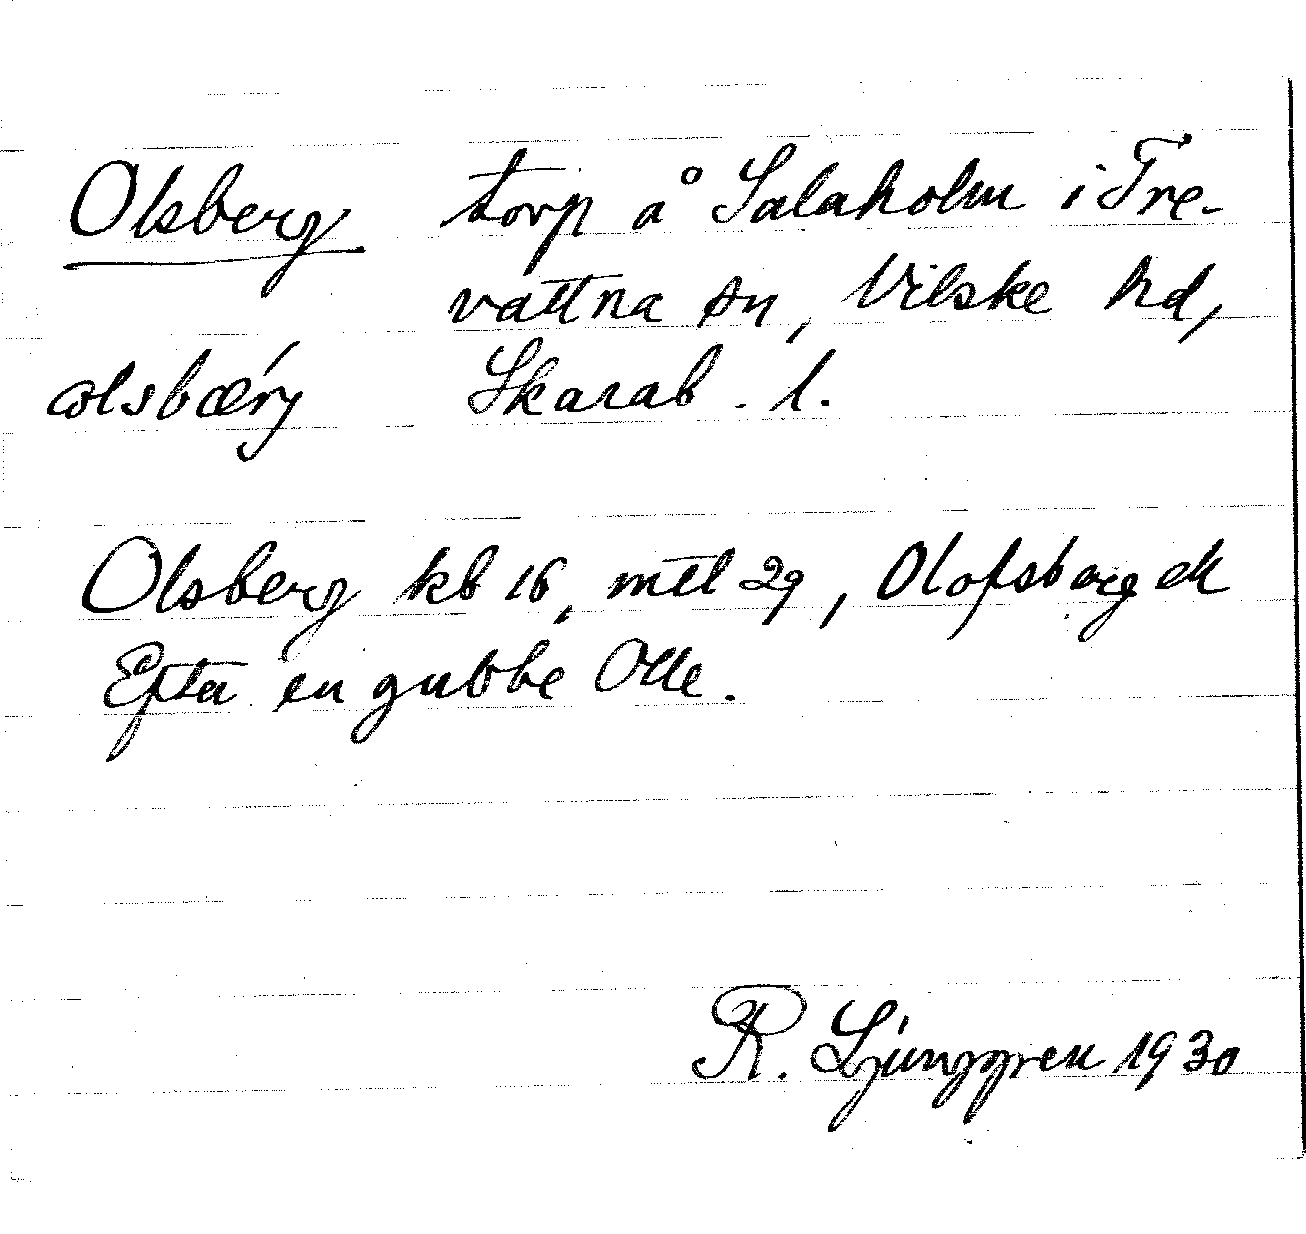 Olsberg torp å Salaholm i Tre-
vattna sn, Vilske hd,
olsbæ´rj Skarab. l.
Olsberg kb 16, mtl 29, Olofsborg ek
Efter en gubbe Olle.
R. Ljunggren 1930